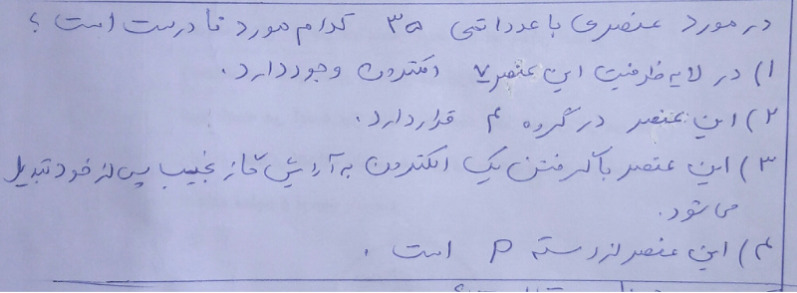 در مورد عنصری با عدد اتمی ۳۵ کدام مورد نادرست است ؟
۱) در لایه ظرفیت این عنصر ۷ الکترون وجود دارد .
۲) این عنصر در گروه ۴ قرار دارد .
۳) این عنصر با گرفتن یک الکترون به آرایش گاز نجیب پس از خود تبدیل
می شود.
۴) این عنصر از دسته p است .